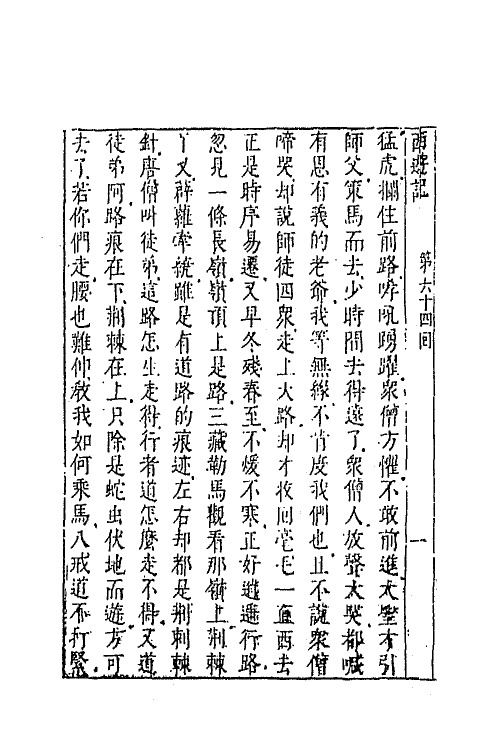 西遊記
第六十四回
一
猛虎攔住前路哮吼踴躍眾僧方懼不敢前進大聖才引
師父策馬而去少時間去得遠了眾僧人放聲大哭都喊
有恩有義的老爺我等無緣不肯度我們也且不說眾僧
啼哭却說師徒四眾走上大路却才收回毫毛一直西去
正是時序易遷又早冬殘春至不煖不寒正好逍遙行路
忽見一條長嶺嶺頂上是路三藏勒馬觀看那嶺上荊棘
丫叉薜蘿牽繞雖是有道路的痕迹左右却都是荊刺棘
針唐僧叫徒弟這路怎生走得行者道怎麼走不得又道
徒弟阿路痕在下荊棘在上只除是蛇虫伏地而遊方可
去了若你們走腰也難伸教我如何乘馬八戒道不打緊